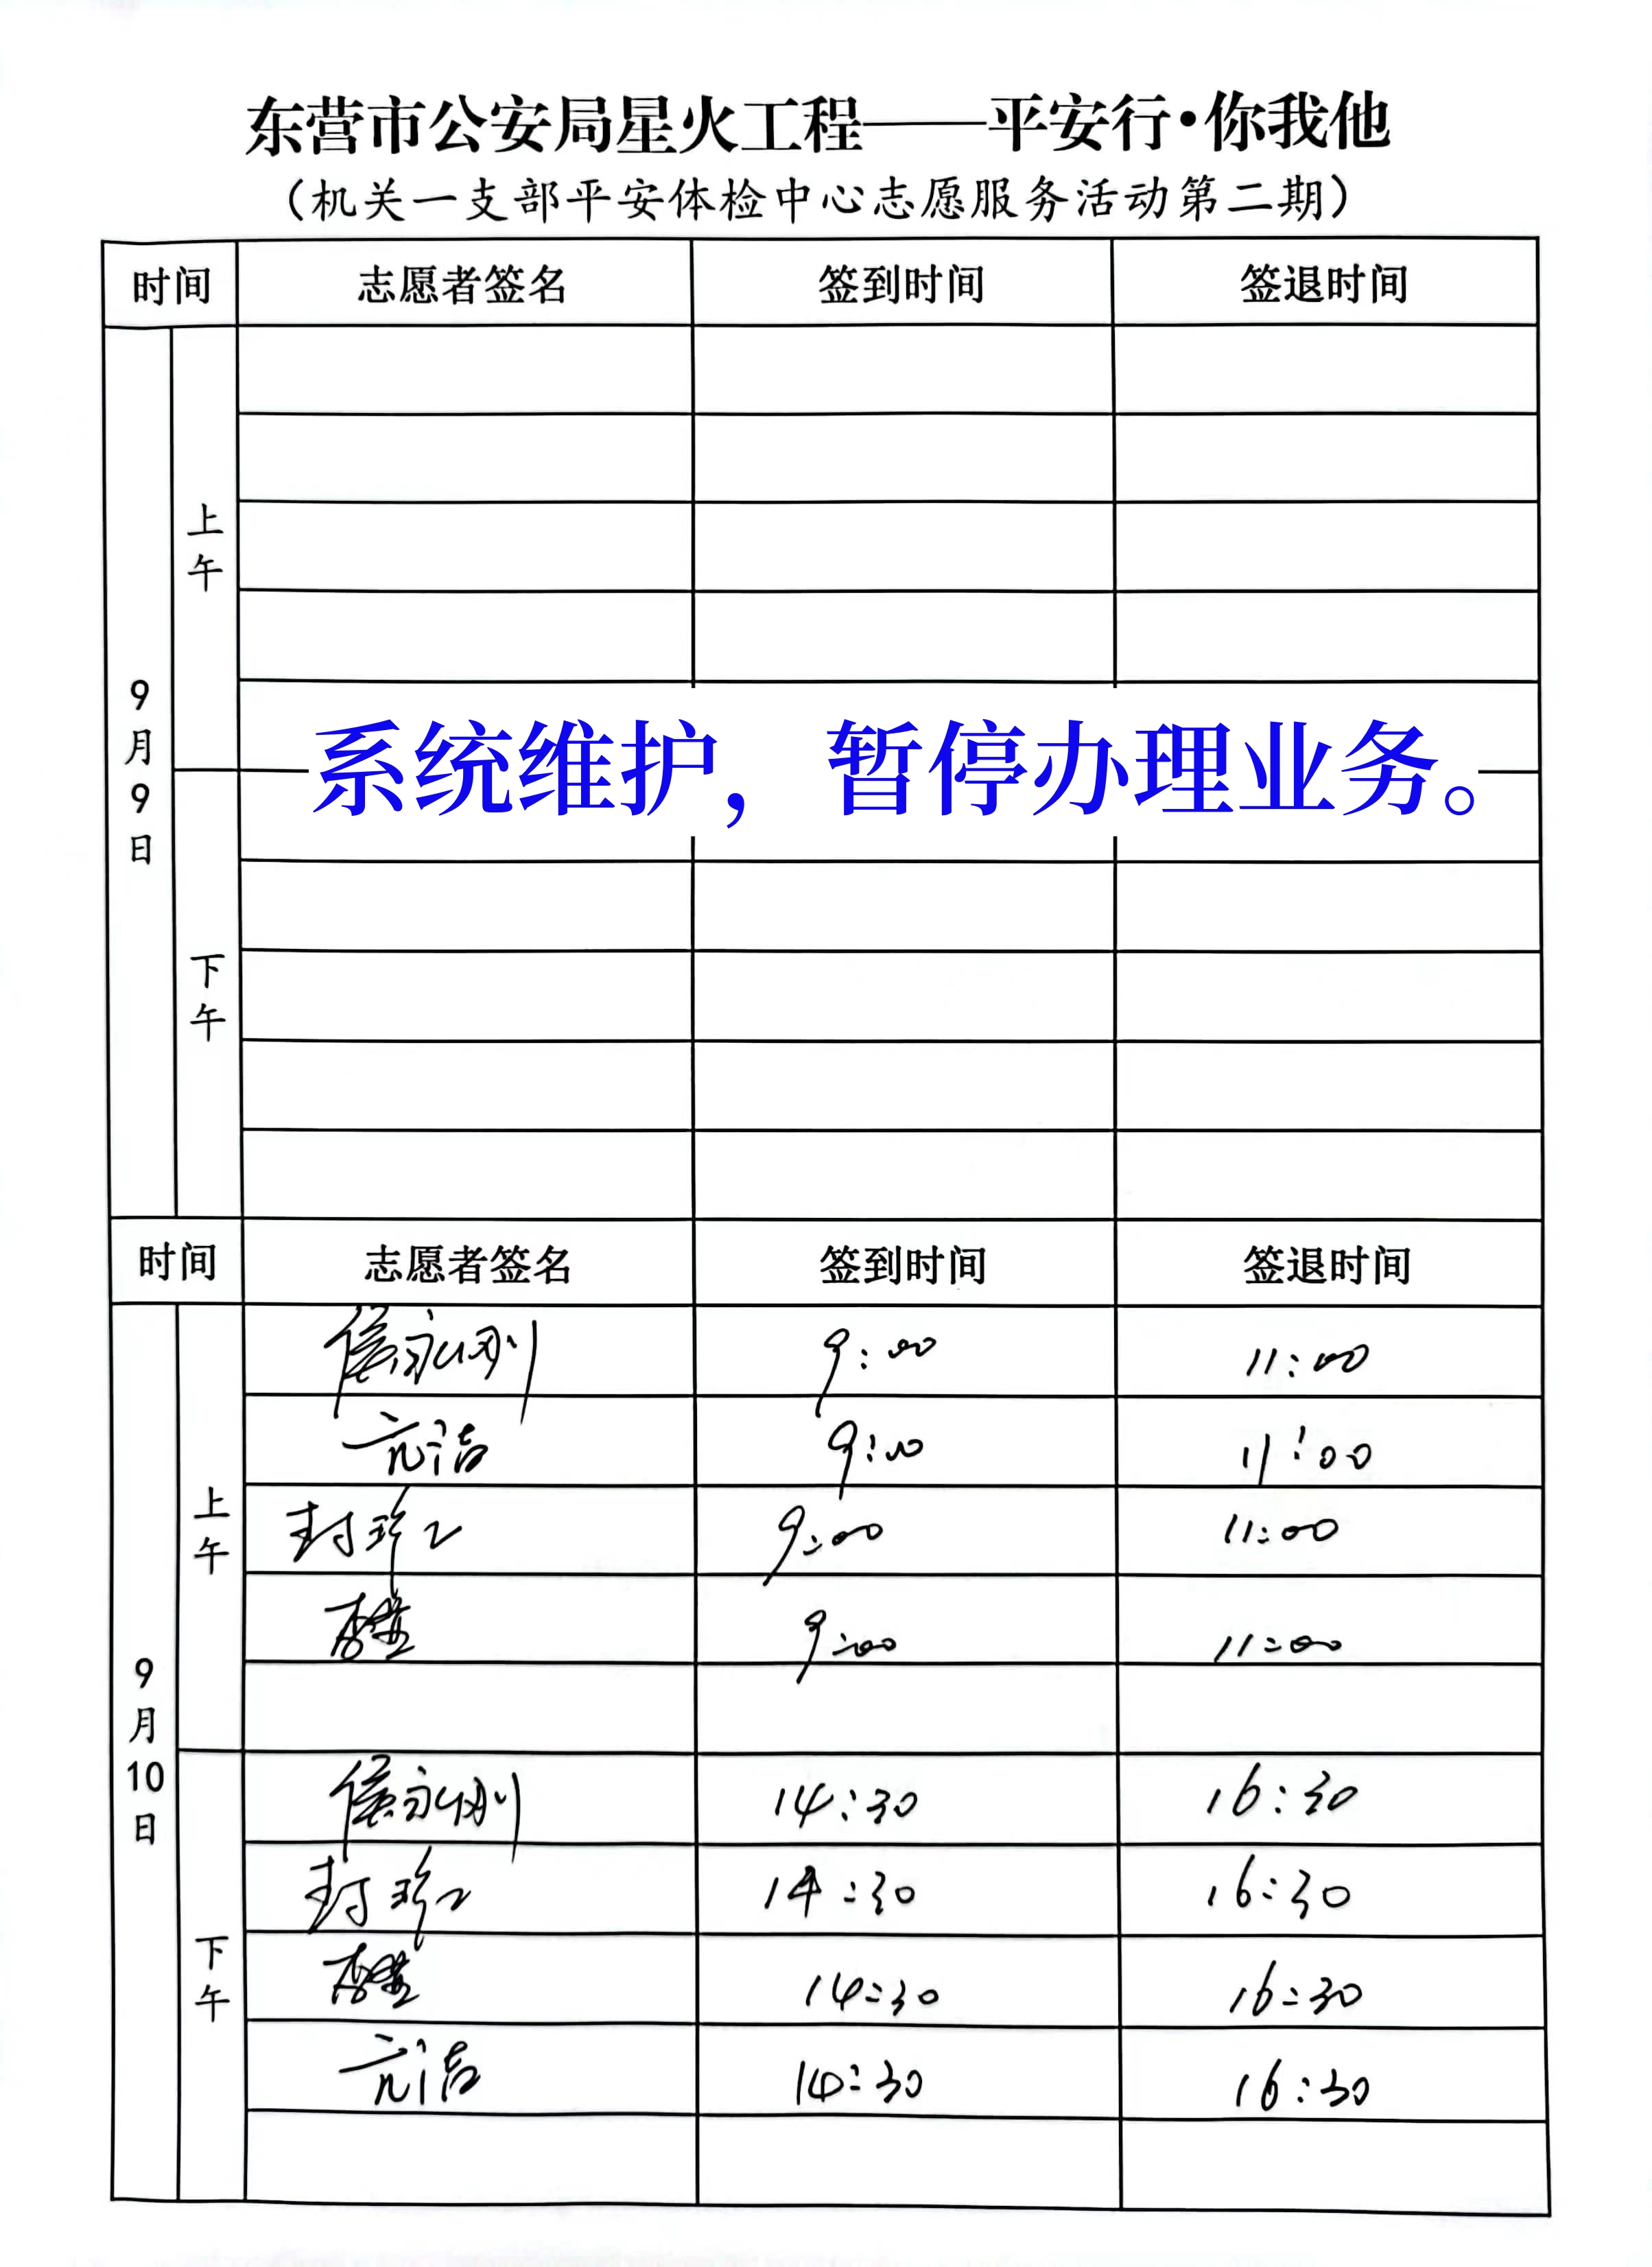 东营市公安局星火工程——平安行·你我他
（机关一支部平安体检中心志愿服务活动第二期）
时间 志愿者签名 签到时间 签退时间
9月9日
上午
系统维护，暂停办理业务。
下午
时间 志愿者签名 签到时间 签退时间
9月10日
上午
侯永刚 9:00 11:00
亓洁 9:00 11:00
封 9:00 11:00
9:00 11:00
下午
侯永刚 14:30 16:30
封 14:30 16:30
14:30 16:30
亓洁 14:30 16:30